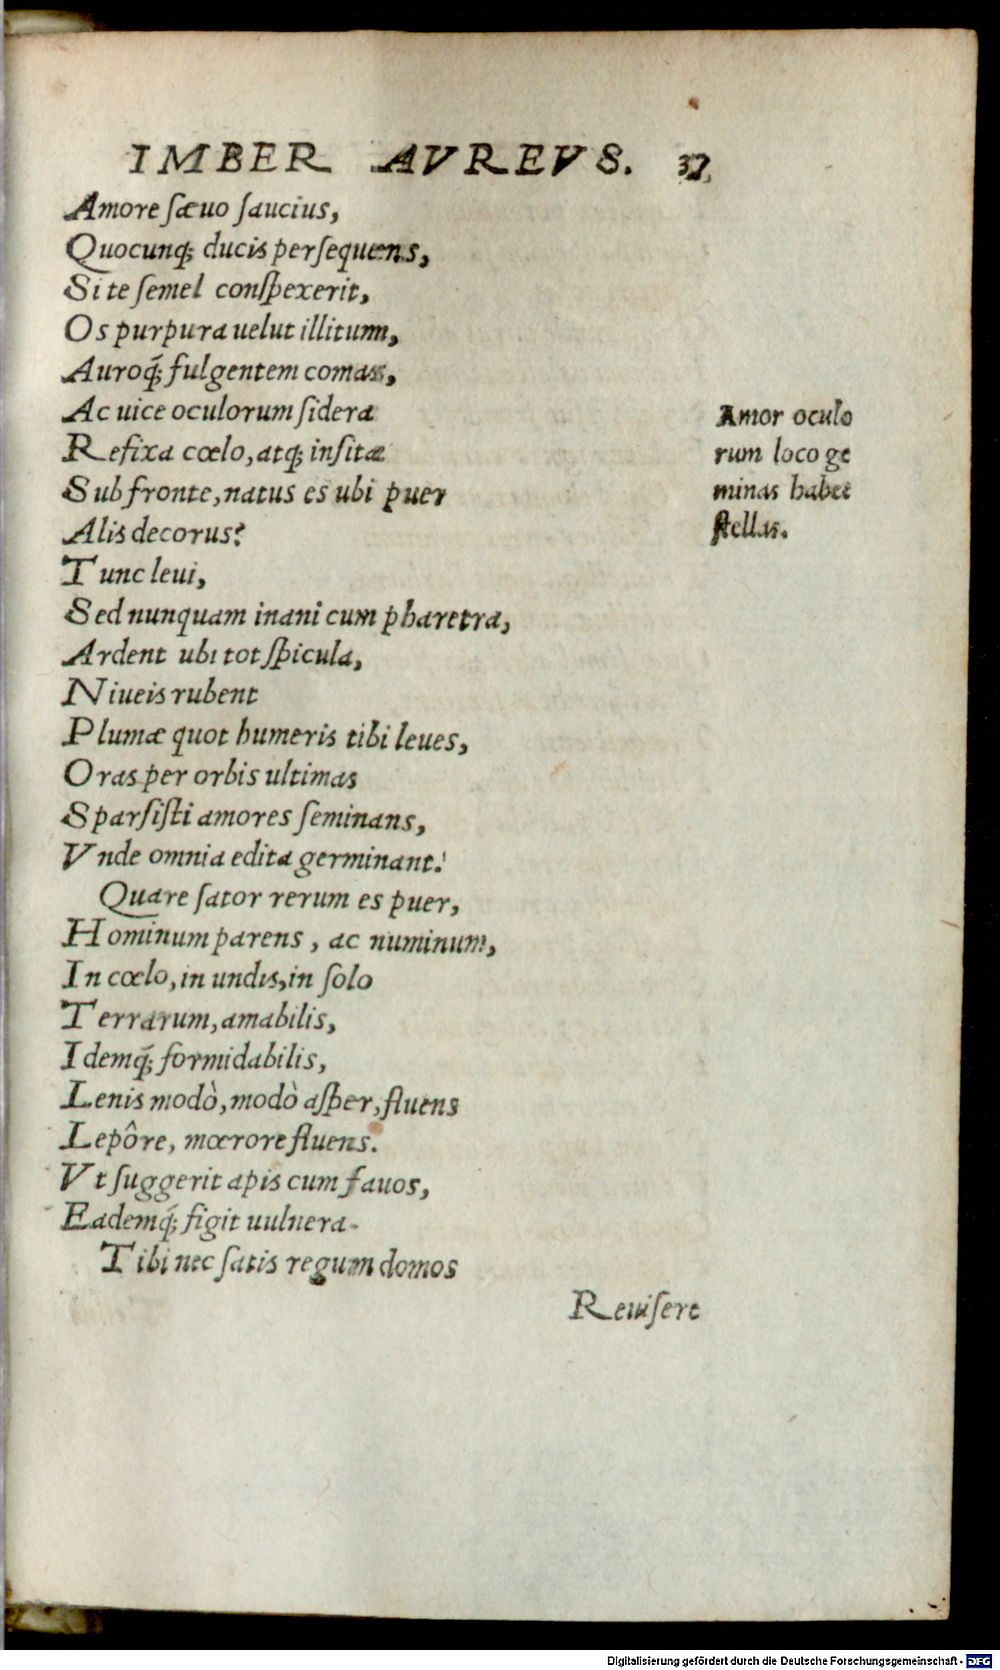 IMBER AVREVS. 37
Amore sæuo saucius,
Quocunq; ducis persequens,
Si te semel conspexerit,
Os purpura uelut illitum,
Auroq́; fulgentem comas,
Ac uice oculorum sidera
Refixa cœlo, atq; insitæ
Sub fronte, natus es ubi puer
Alis decorus?
Tunc leui,
Sed nunquam inani cum pharetra,
Ardent ubi tot spicula,
Niueis rubent
Plumæ quot humeris tibi leues,
Oras per orbis ultimas
Sparsisti amores seminans,
Vnde omnia edita germinant!
Quare sator rerum es puer,
Hominum parens, ac numinum,
In cœlo, in undis, in solo
Terrarum, amabilis,
Idemq́; formidabilis,
Lenis modò, modò asper, fluens
Lepôre, mœrore fluens.
Vt suggerit apis cum fauos,
Eademq́; figit uulnera.
Tibi nec satis regum domos
Reuisere
Amor oculo
rum loco ge
minas habet
stellas.
Digitalisierung gefördert durch die Deutsche Forschungsgemeinschaft - DFG